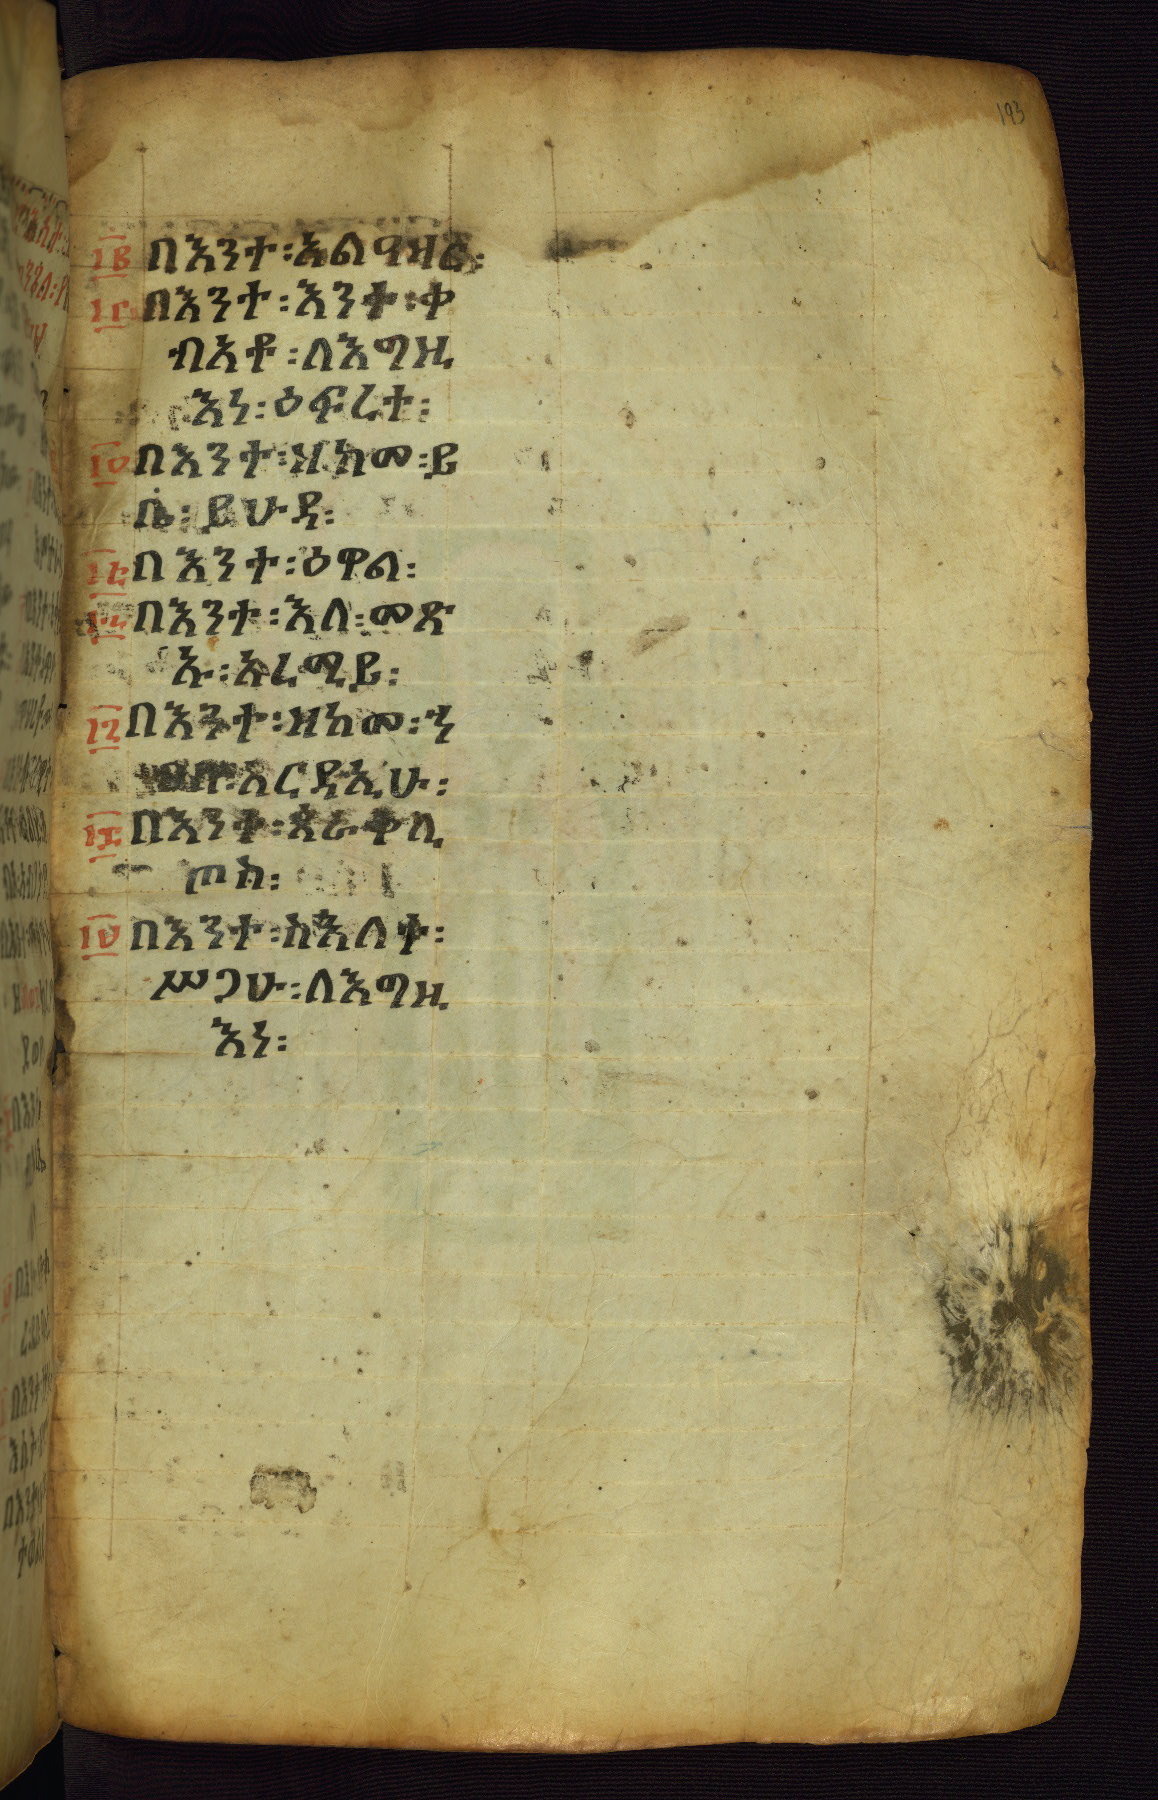 193
፲፪ በእንተ፡አልዓዛር፡
፲፫ በእንተ፡እንተ፡ቀ
ብአቶ፡ለእግዚ
እነ፡ዕፍረተ፡
፲፬ በእንተ፡ዘከመ፡ይ
ቤ፡ይሁዳ፡
፲፭ በእንተ፡ዕዋል፡
፲፮ በእንተ፡እለ፡መጽ
ኡ፡አረሚይ፡
፲፯ በእንተ፡ዘከመ፡ኀ
አርዳኢሁ፡
፲፰ በእንተ፡ጰራቅሊ
ጦስ፡
፲፱ በእንተ፡ስእለቱ፡
ሥጋሁ፡ለእግዚ
እነ፡